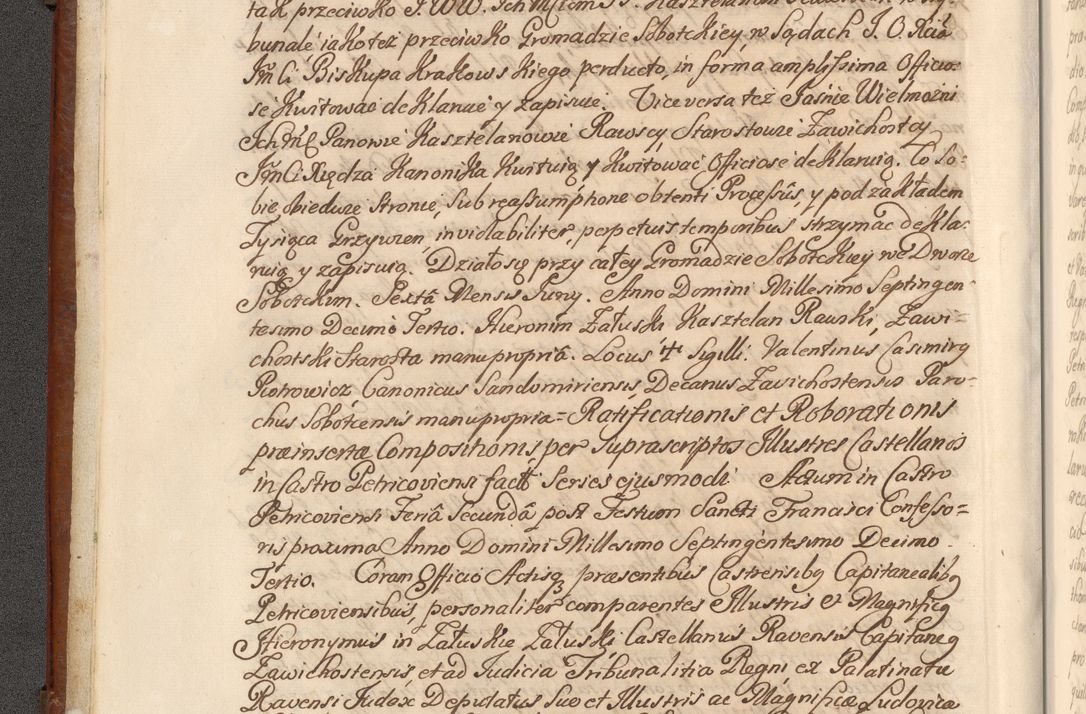 tak przeciwko J.WW. Ich
bunale iako też przeciwko Gromadzie Sobotckiey, w Sądach J. O. Xcia
Jmci Biskupa Krakowskiego perducto, in forma amplissima Officio
se kwitowac deklaruie y zapisuie. Vice versa też Jaśnie Wielmożni
Ich Panowie Kasztelanowie Rawscy Starostowie Zawichostcy
Jmci Xiędza Kanonika kwituią y kwitować Officiose deklaruią. To So:
bie obiedwie Stronie, sub reassumptione obtenti Processûs, y pod zakładem
Tysiąca Grzywien, inviolabiliter, perpetuis temporibus strzymać dekla:
ruią y zapisuią. Działo się przy całey Gromadzie Sobotckiey we Dworze
Sobotckim. Sextâ Mensis Juny. Anno Domini Millesimo Septingen
tesimo Decimo Tertio. Hieronim Załuski Kasztelan Rawski, Zawi=
chostski Starosta manu propriâ. Locus ✝ Sigilli. Valentinus Casimirq
Piotrowicz Canonicus Sandomiriensis, Decanus Zavichostensis Paro=
chus Sobotcensis manu propria = Ratificationis et Roborationis
præinsertæ Compositionis per suprascriptos Illustres Castellanos
in Castro Petricoviensi factæ Series ejusmodi Actum in Castro
Petricoviensi Feriâ Secundâ post Festum Sancti Francisci Confesso=
ris proxima Anno Domini Millesimo Septingentesimo Decimo
Tertio. Coram Officio Actisq præsentibus Castrensibq Capitanealibq
Petricoviensibus, personaliter comparentes Illustris et Magnificq
Hieronymus in Załuskie Załuski Castellanus Ravensis Capitaneq
Zawichostensis, et ad Judicia Tribunalitia Regni ex Palatinatu
Ravensi Judex Deputatus Suo et Illustris ac Magnificæ Ludovicæ